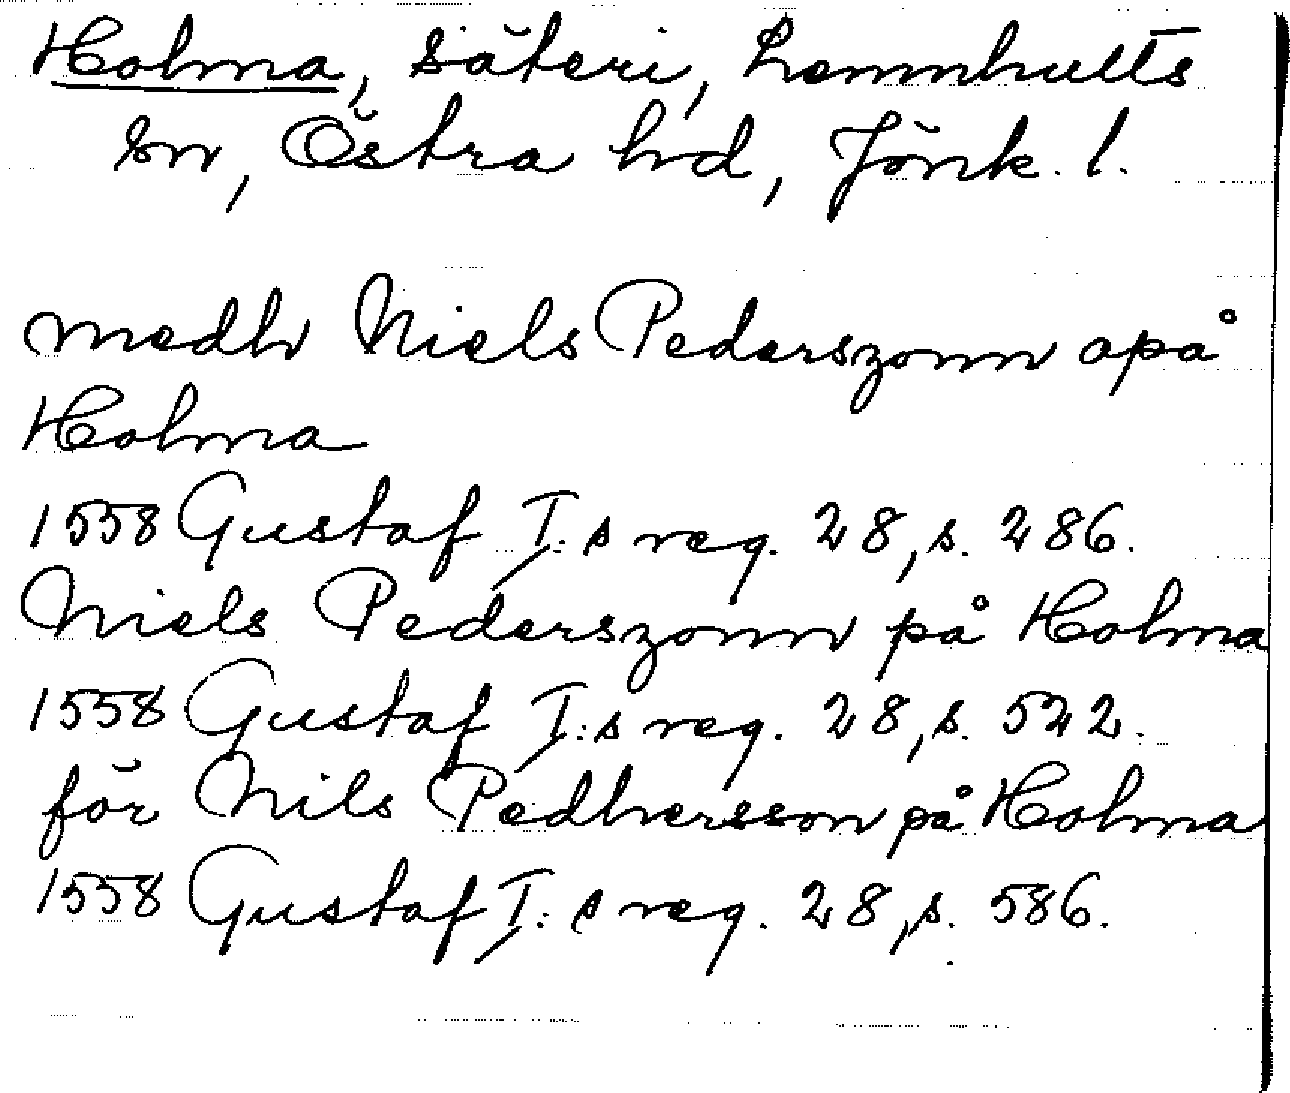 Holma, säteri, Lemnhults
sn, Östra hd, Jönk. l.
medh Niels Pederszonn opå
Holma
1558 Gustaf I:s reg. 28, s. 286.
Niels Pederszonn på Holma
1558 Gustaf I:s reg. 28, s. 522.
för Nils Pedhersson på Holma
1558 Gustaf I:s reg. 28, s. 586.